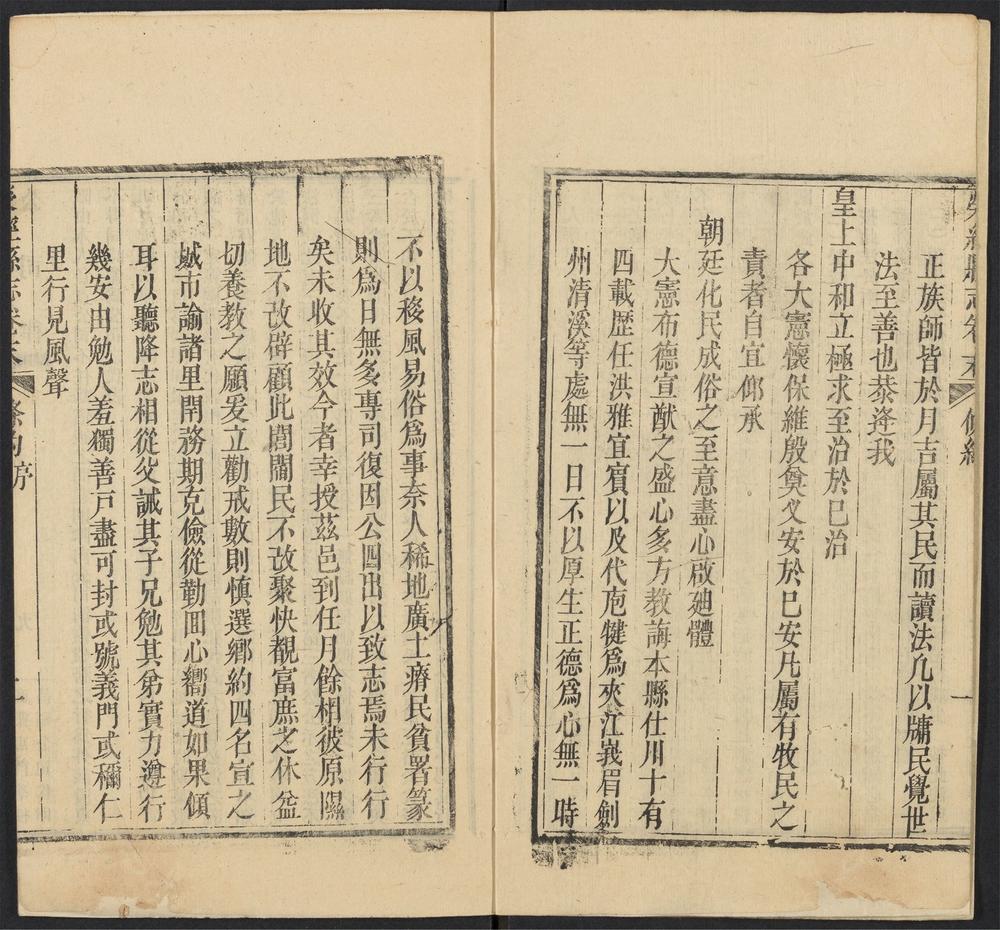 縣志卷末 條約
一
正族師皆於月吉屬其民而讀法凢以牖民覺世
法至善也恭逢我
皇上中和立極求至治於巳治
各大憲懷保維殷奠乂安於巳安凡屬有牧民之
責者自宜仰承
朝廷化民成俗之至意盡心啟廸體
大憲布德宣猷之盛心多方教誨本縣仕川十有
四載歷任洪雅宜賓以及代庖犍爲夾江峩眉劍
州清溪等處無一日不以厚生正德爲心無一時
不以移風易俗爲事奈人稀地廣土瘠民貧署篆
則爲日無多專司復因公四出以致志焉未行行
矣未收其效今者幸授茲邑到任月餘相彼原隰
地不改辟顧此閭閻民不改聚快覩富庶之休益
切養教之願爰立勸戒數則慎選鄉約四名宣之
城市諭諸里閈務期克儉從勤囬心嚮道如果傾
耳以聽降志相從父誡其子兄勉其弟實力遵行
幾安由勉人羞獨善戸盡可封或號義門或稱仁
里行見風聲
經縣志卷末 條約序
二